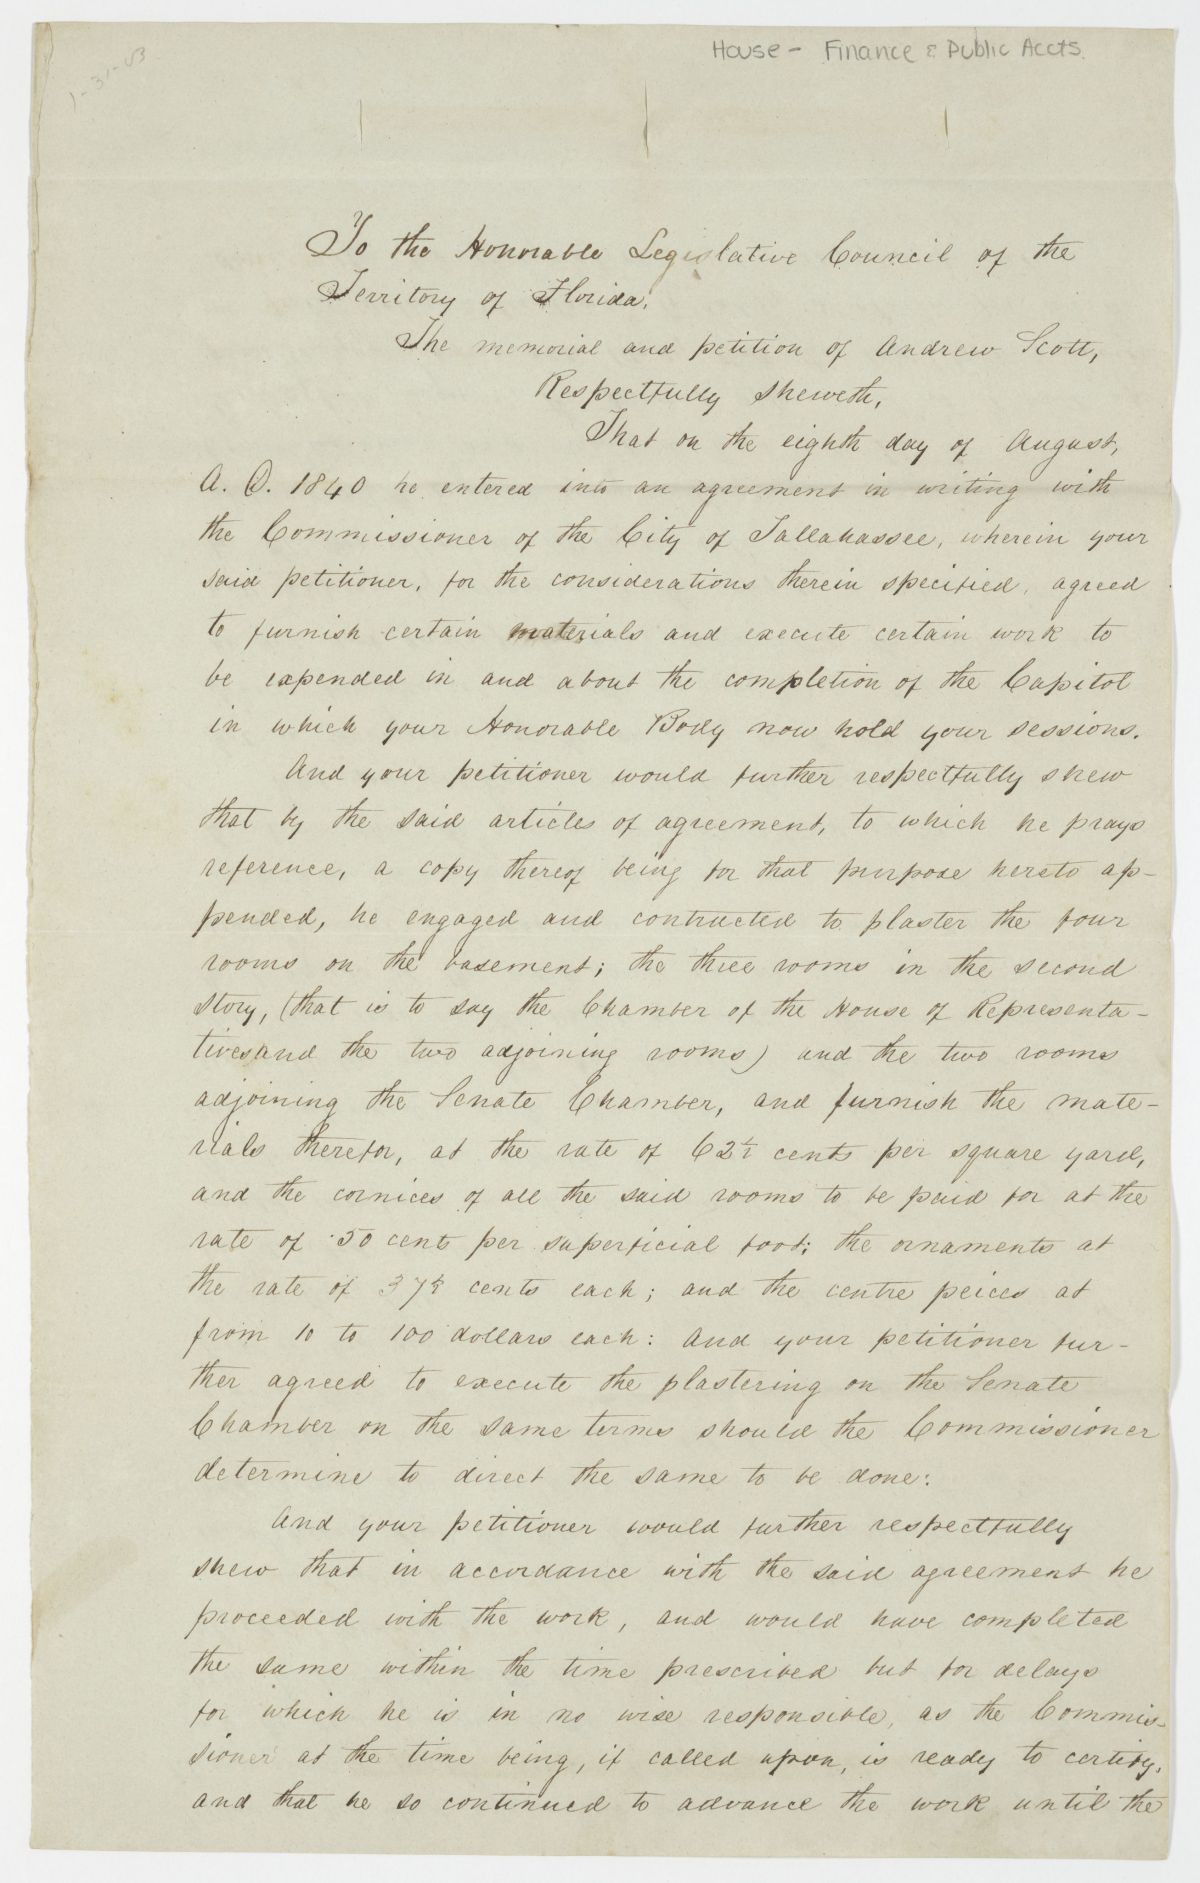 House - Finance & Public Accts.
1-31-43
To the Honorable Legislative Council of the
Territory of Florida.
The memorial and petition of Andrew Scott,
Respectfully sheweth,
That on the eighth day of August,
A. D. 1840 he entered into an agreement in writing with
the Commissioner of the City of Tallahassee, wherein your
said petitioner, for the considerations therein specified, agreed
to furnish certain materials and execute certain work to
be expended in and about the completion of the Capitol
in which your Honorable Body now hold your sessions.
And your petitioner would further respectfully shew
that by the said articles of agreement, to which he prays
reference, a copy thereof being for that purpose hereto ap-
pended, he engaged and contracted to plaster the four
rooms on the basement; the three rooms in the second
story, (that is to say the Chamber of the House of Representa-
tives and the two adjoining rooms) and the two rooms
adjoining the Senate Chamber, and furnish the mate-
rials therefor, at the rate of 62½ cents per square yard,
and the cornices of all the said rooms to be paid for at the
rate of 50 cents per superficial foot; the ornaments at
the rate of 37½ cents each; and the centre peices at
from 10 to 100 dollars each: And your petitioner fur-
ther agreed to execute the plastering on the Senate
Chamber on the same terms should the Commissioner
determine to direct the same to be done:
And your petitioner would further respectfully
shew that in accordance with the said agreement he
proceeded with the work, and would have completed
the same within the time prescribed but for delays
for which he is in no wise responsible, as the Commis-
sioner at the time being, if called upon, is ready to certify,
and that he so continued to advance the work until the